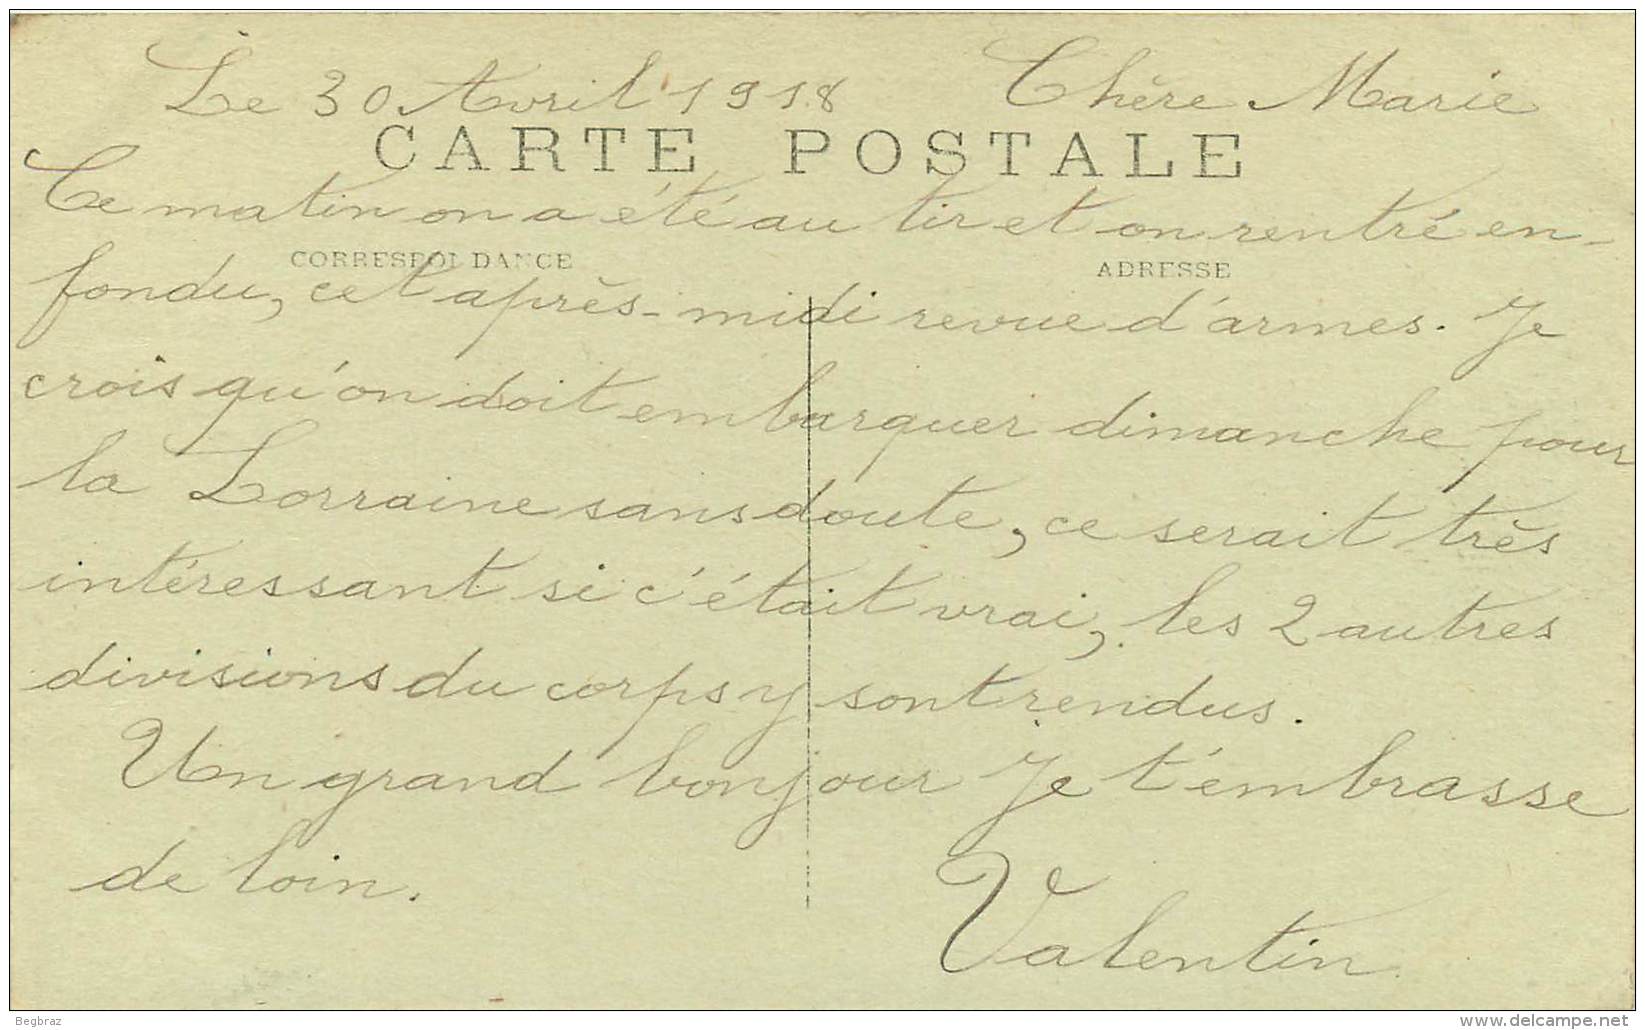 Le 30 Avril 1918 Chère Marie
CARTE POSTALE
Ce matin on a été au tir et on rentré en-
CORRESPONDANCE ADRESSE
fondu, cet après-midi revue d'armes. Je
crois qu'on doit embarquer dimanche pour
la Lorraine sans doute, ce serait très
intéressant si c'était vrai, les 2 autres
divisions du corps y sont rendus.
Un grand bonjour Je t'embrasse
de loin.
Valentin
Begbraz
delcampe.net